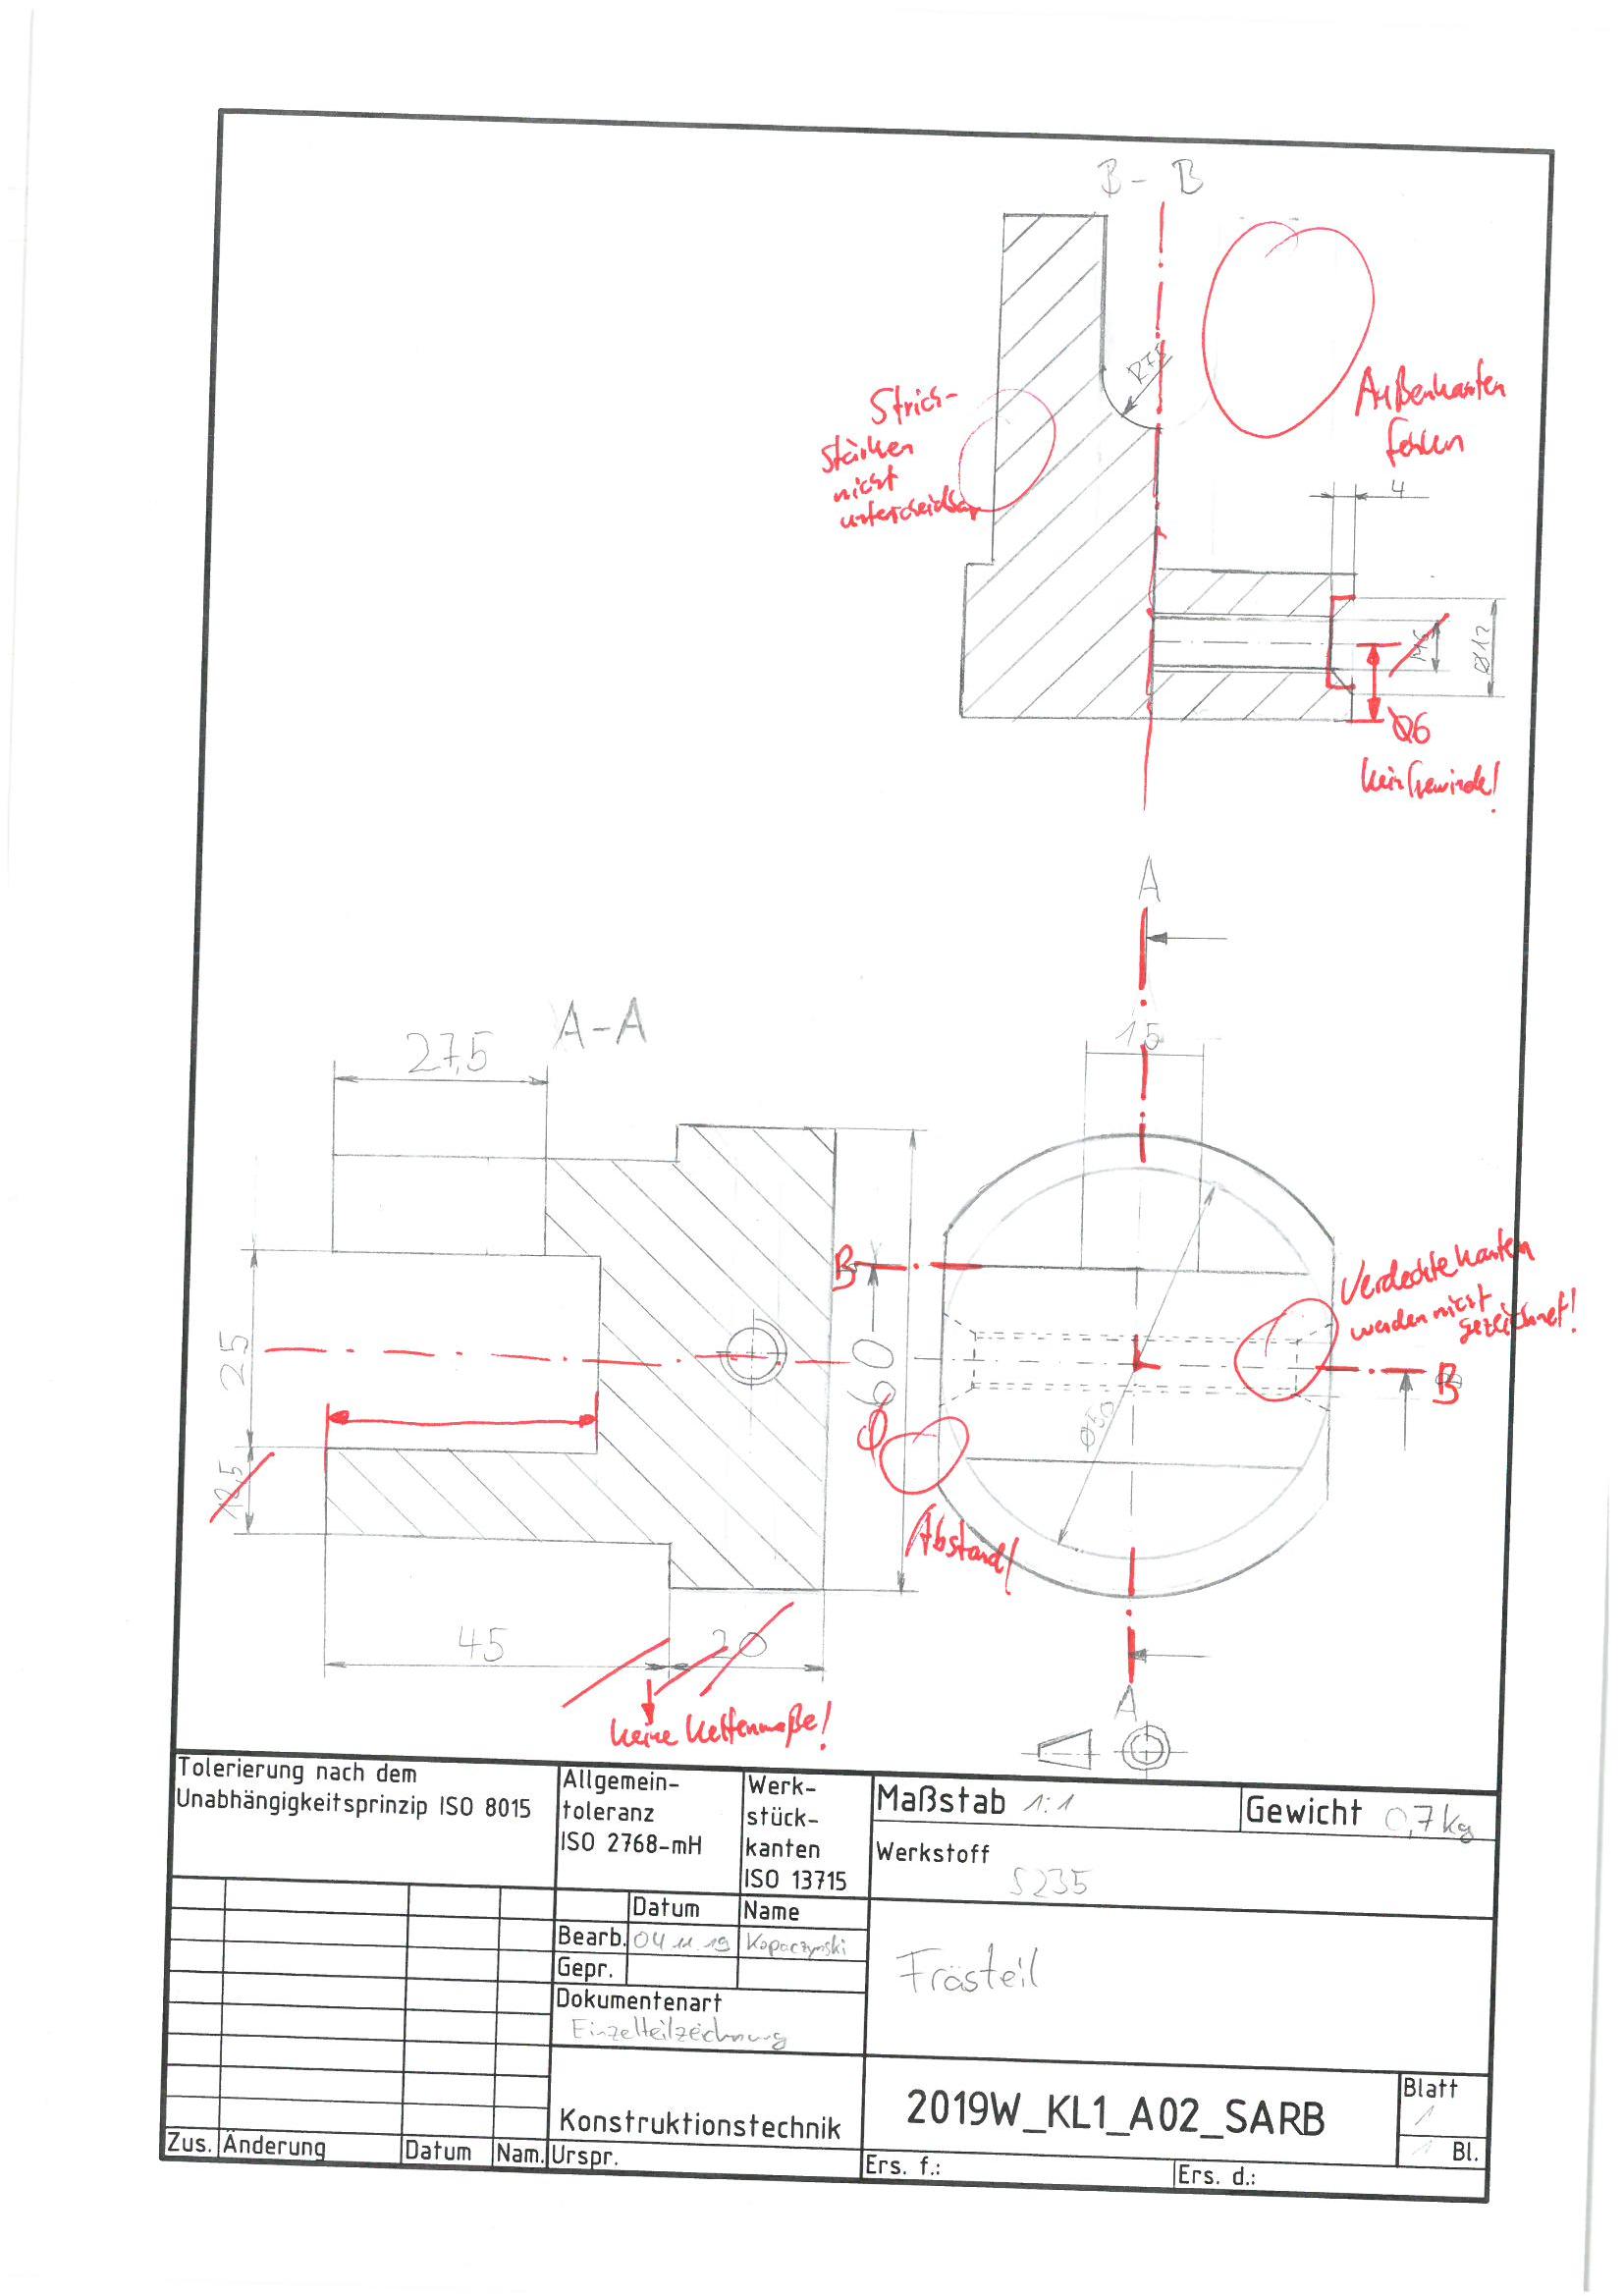 B - B
R7,5
Strich-
stärken
nicht
unterscheidbar
Außenkanten
fehlen
4
M6
Ø12
Ø6
kein Gewinde!
A
A-A
27,5
15
B
60
25
12,5
Ø50
Verdeckte Kanten
werden nicht
gezeichnet!
B
Ø
Abstand!
45
20
keine Kettenmaße!
A
Tolerierung nach dem
Unabhängigkeitsprinzip ISO 8015
Allgemein-
toleranz
ISO 2768-mH
Werk-
stück-
kanten
ISO 13715
Maßstab 1:1
Gewicht 0,7kg
Werkstoff
S235
Datum Name
Bearb. 04.11.19 Kopaczynski
Gepr.
Dokumentenart
Einzelteilzeichnung
Frästeil
Konstruktionstechnik
2019W_KL1_A02_SARB
Blatt
1
1 Bl.
Zus. Änderung Datum Nam. Urspr. Ers. f.: Ers. d.: